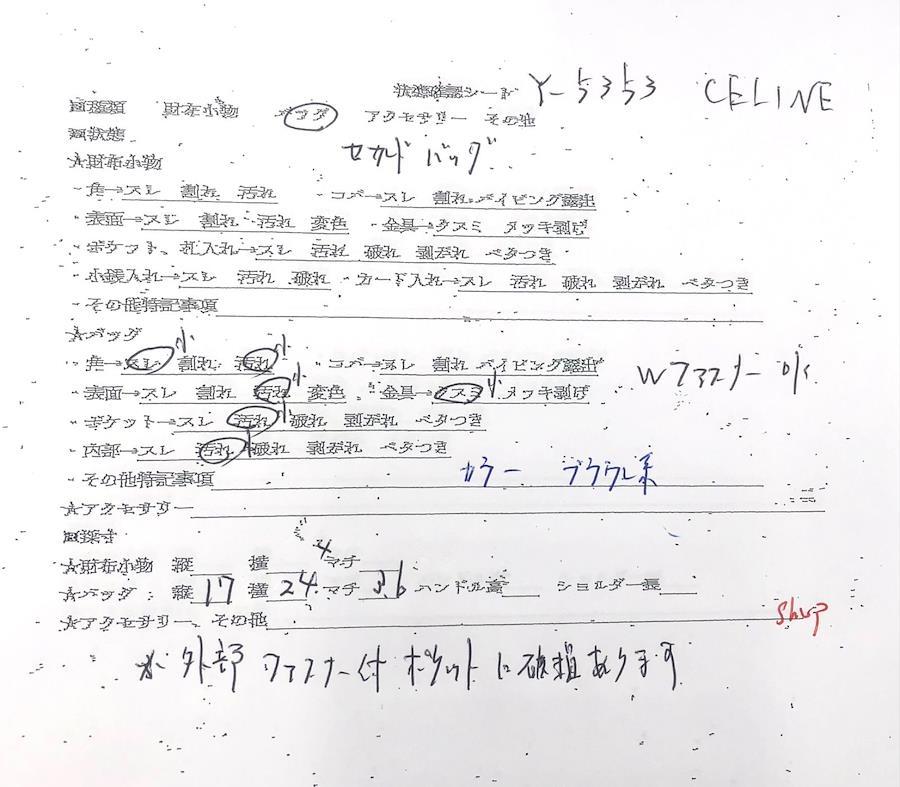 状態確認シート Y-5353 CELINE
■種類 財布小物 バッグ アクセサリー その他
■状態 セカンドバッグ
★財布小物
・角→スレ 割れ 汚れ ・コバ→スレ 割れ パイピング露出
・表面→スレ 割れ 汚れ 変色 ・金具→クスミ メッキ剥げ
・ポケット、札入れ→スレ 汚れ 破れ 剥がれ ベタつき
・小銭入れ→スレ 汚れ 破れ ・カード入れ→スレ 汚れ 破れ 剥がれ ベタつき
・その他特記事項
★バッグ
・角→スレ 小 割れ 汚れ 小 ・コバ→スレ 割れ パイピング露出
・表面→スレ 割れ 汚れ 小 変色 ・金具→クスミ 小 メッキ剥げ Wファスナー
・ポケット→スレ 汚れ 小 破れ 剥がれ ベタつき
・内部→スレ 汚れ 破れ 剥がれ ベタつき
・その他特記事項 カラー ブラウン系
★アクセサリー
■採寸
★財布小物 縦 横 マチ 4
★バッグ 縦 17 横 24 マチ 3.6 ハンドル高 ショルダー長
★アクセサリー、その他
外部ファスナー付ポケットに破損あります